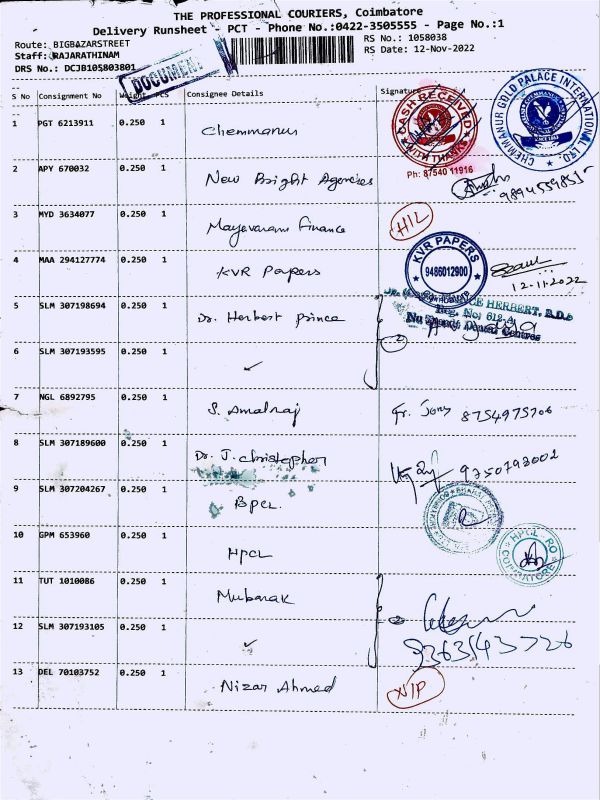 THE PROFESSIONAL COURIERS, Coimbatore
Delivery Runsheet - PCT - Phone No.:0422-3505555 - Page No.:1
Route: BIGBAZARSTREET
RS No.: 1058038
Staff: RAJARATHINAM
RS Date: 12-Nov-2022
DRS No.: DCJB105803801
DOCUMENT
S No Consignment No Weight PCS Consignee Details Signature
1 PGT 6213911 0.250 1 Chemmanur
CASH RECEIVED WITH THANKS
Ph: 87540 11916
CHEMMANUR GOLD PALACE INTERNATIONAL LTD.
2 APY 670032 0.250 1 New Bright Agencies
9894559855
3 MYD 3634077 0.250 1 Mayavaram Finance H/L
4 MAA 294127774 0.250 1 KVR Papers
KVR PAPERS
9486012900
12-11-2022
5 SLM 307198694 0.250 1 Dr. Herbert Prince
HERBERT, B.D.S
Reg. No: 612-A
Dental Centres
6 SLM 307193595 0.250 1 ✓
7 NGL 6892795 0.250 1 S. Amalraj Fr. Jony 8754975706
8 SLM 307189600 0.250 1 Dr. J. Christopher 9750793002
9 SLM 307204267 0.250 1 BPCL
10 GPM 653960 0.250 1 HPCL
HPCL - RO
COIMBATORE
11 TUT 1010086 0.250 1 Mubarak
12 SLM 307193105 0.250 1 ✓
9363143726
13 DEL 70103752 0.250 1 Nizar Ahmed N/P